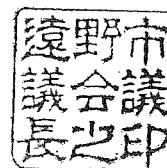 遠野市
議会議
長之印